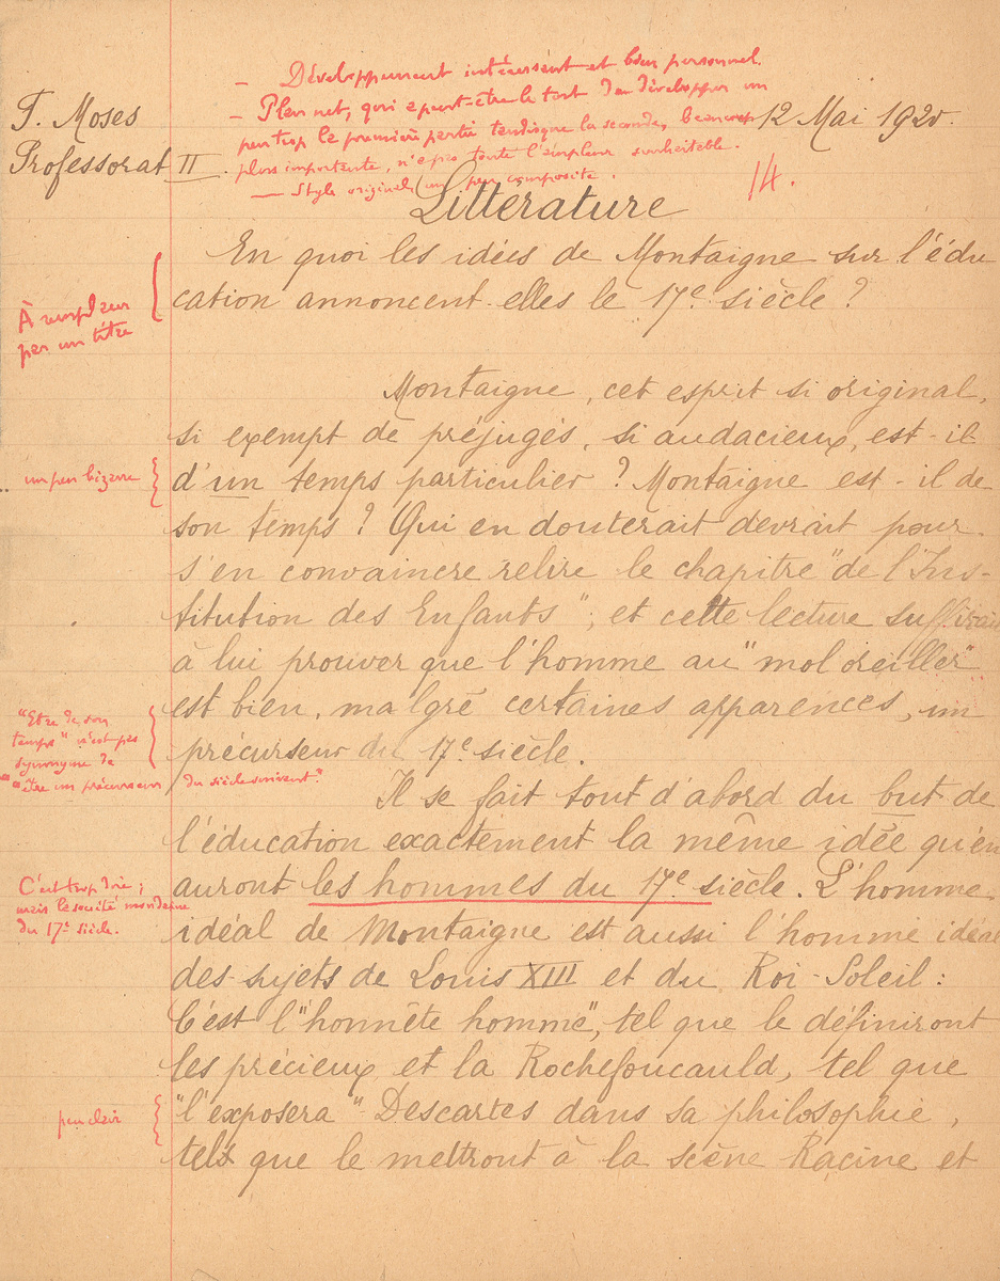 - Développement intéressant et bien personnel.
- Plan net, qui a peut-être le tort de développer un
peu trop la première partie tandis que la seconde, beaucoup
plus importante, n'a pas toute l'ampleur souhaitable.
- Style original (un peu composite.
14.
T. Moses
Professorat II.
12 Mai 1920.
Littérature
En quoi les idées de Montaigne sur l'édu
cation annoncent-elles le 17e siècle ?
À remplacer
par un titre
Montaigne, cet esprit si original,
si exempt de préjugés, si audacieux, est-il
d'un temps particulier ? Montaigne est-il de
un peu bizarre
son temps ? Qui en douterait devrait pour
s'en convaincre relire le chapitre "de l'Ins-
titution des Enfants", et cette lecture suffirait
à lui prouver que l'homme au "mol oreiller"
est bien, malgré certaines apparences, un
précurseur du 17e siècle.
"Etre de son
temps" n'est pas
synonyme de
"être un précurseur du siècle suivant".
Il se fait tout d'abord du but de
l'éducation exactement la même idée qu'en
auront les hommes du 17e siècle. L'homme
C'est trop dire ;
mais la société mondaine
du 17e siècle.
idéal de Montaigne est aussi l'homme idéal
des sujets de Louis XIII et du Roi-Soleil :
C'est l'"honnête homme", tel que le définiront
les précieux et la Rochefoucauld, tel que
"l'exposera" Descartes dans sa philosophie,
peu clair
tels que le mettront à la scène Racine et